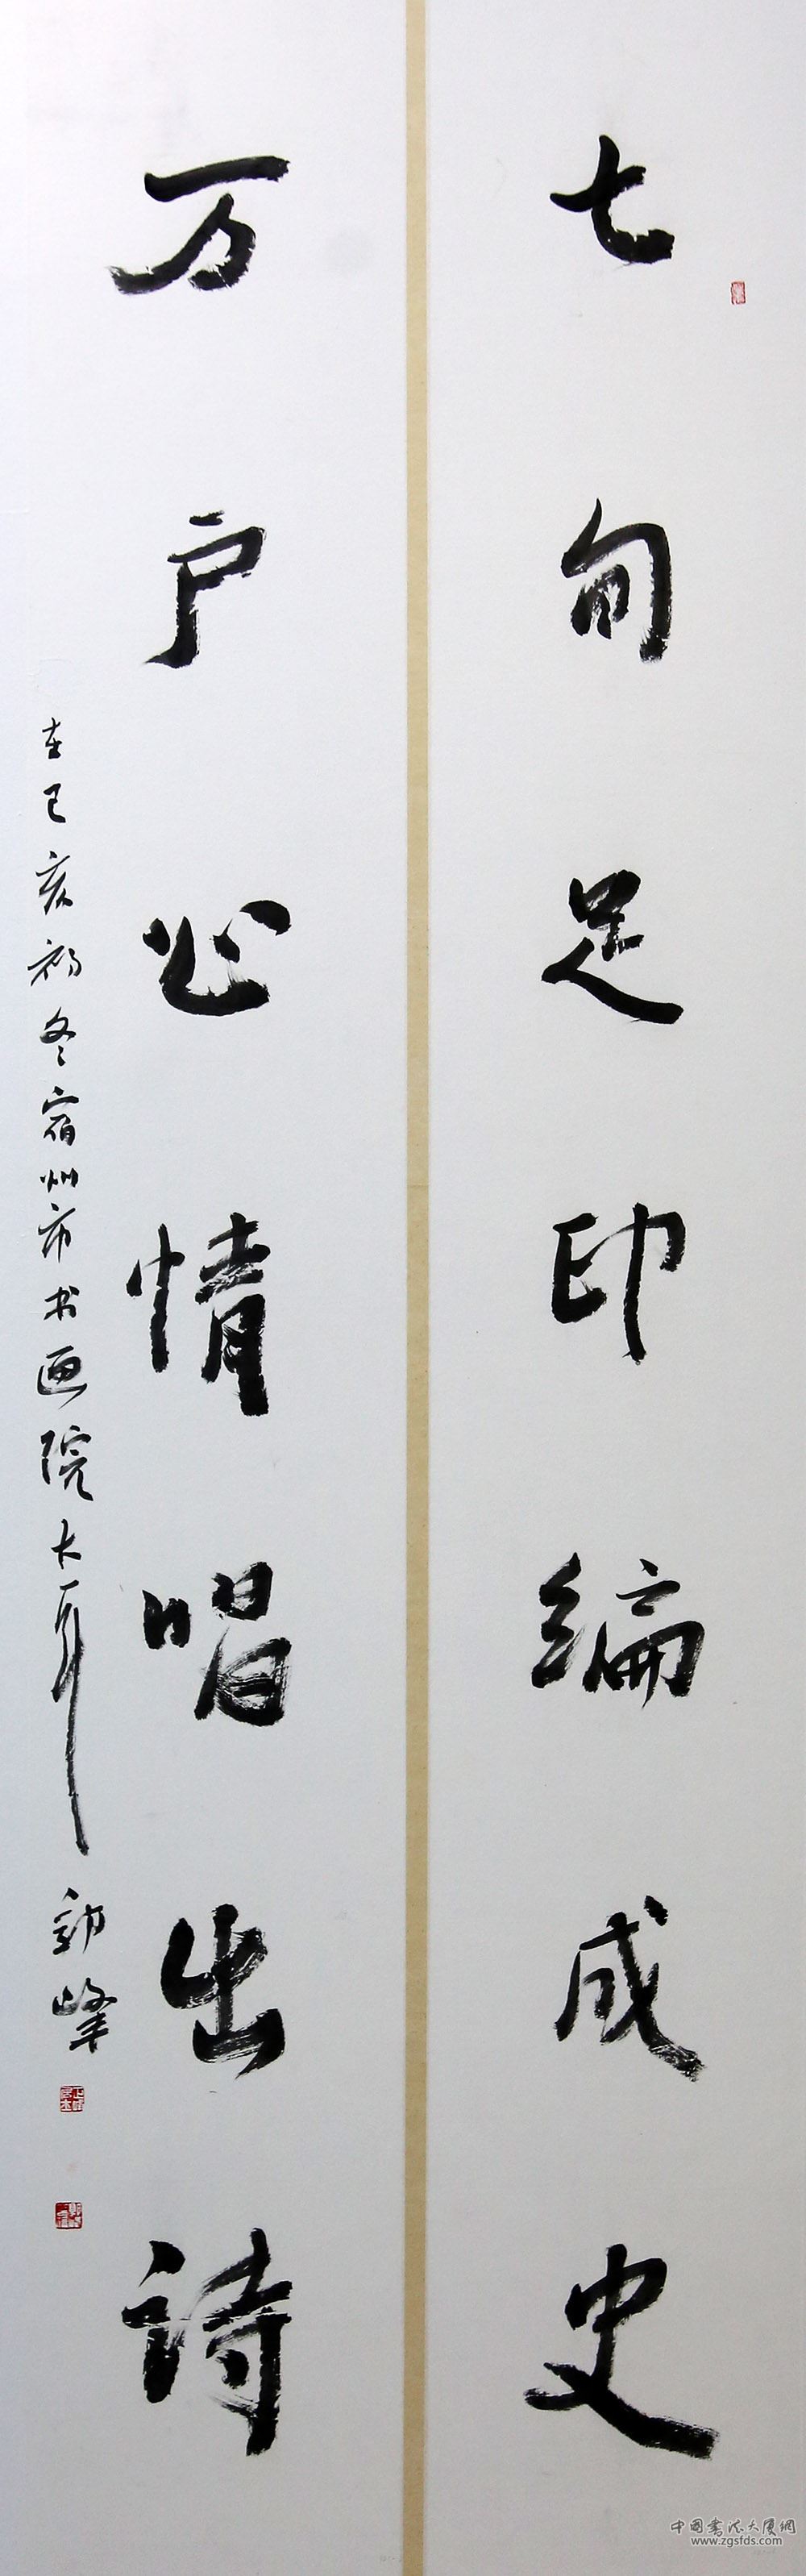 七旬足印编成史
万户心情唱出诗
在己亥初冬宿州市书画院大军劲峰
中国书法大厦網
www.zgsfds.com